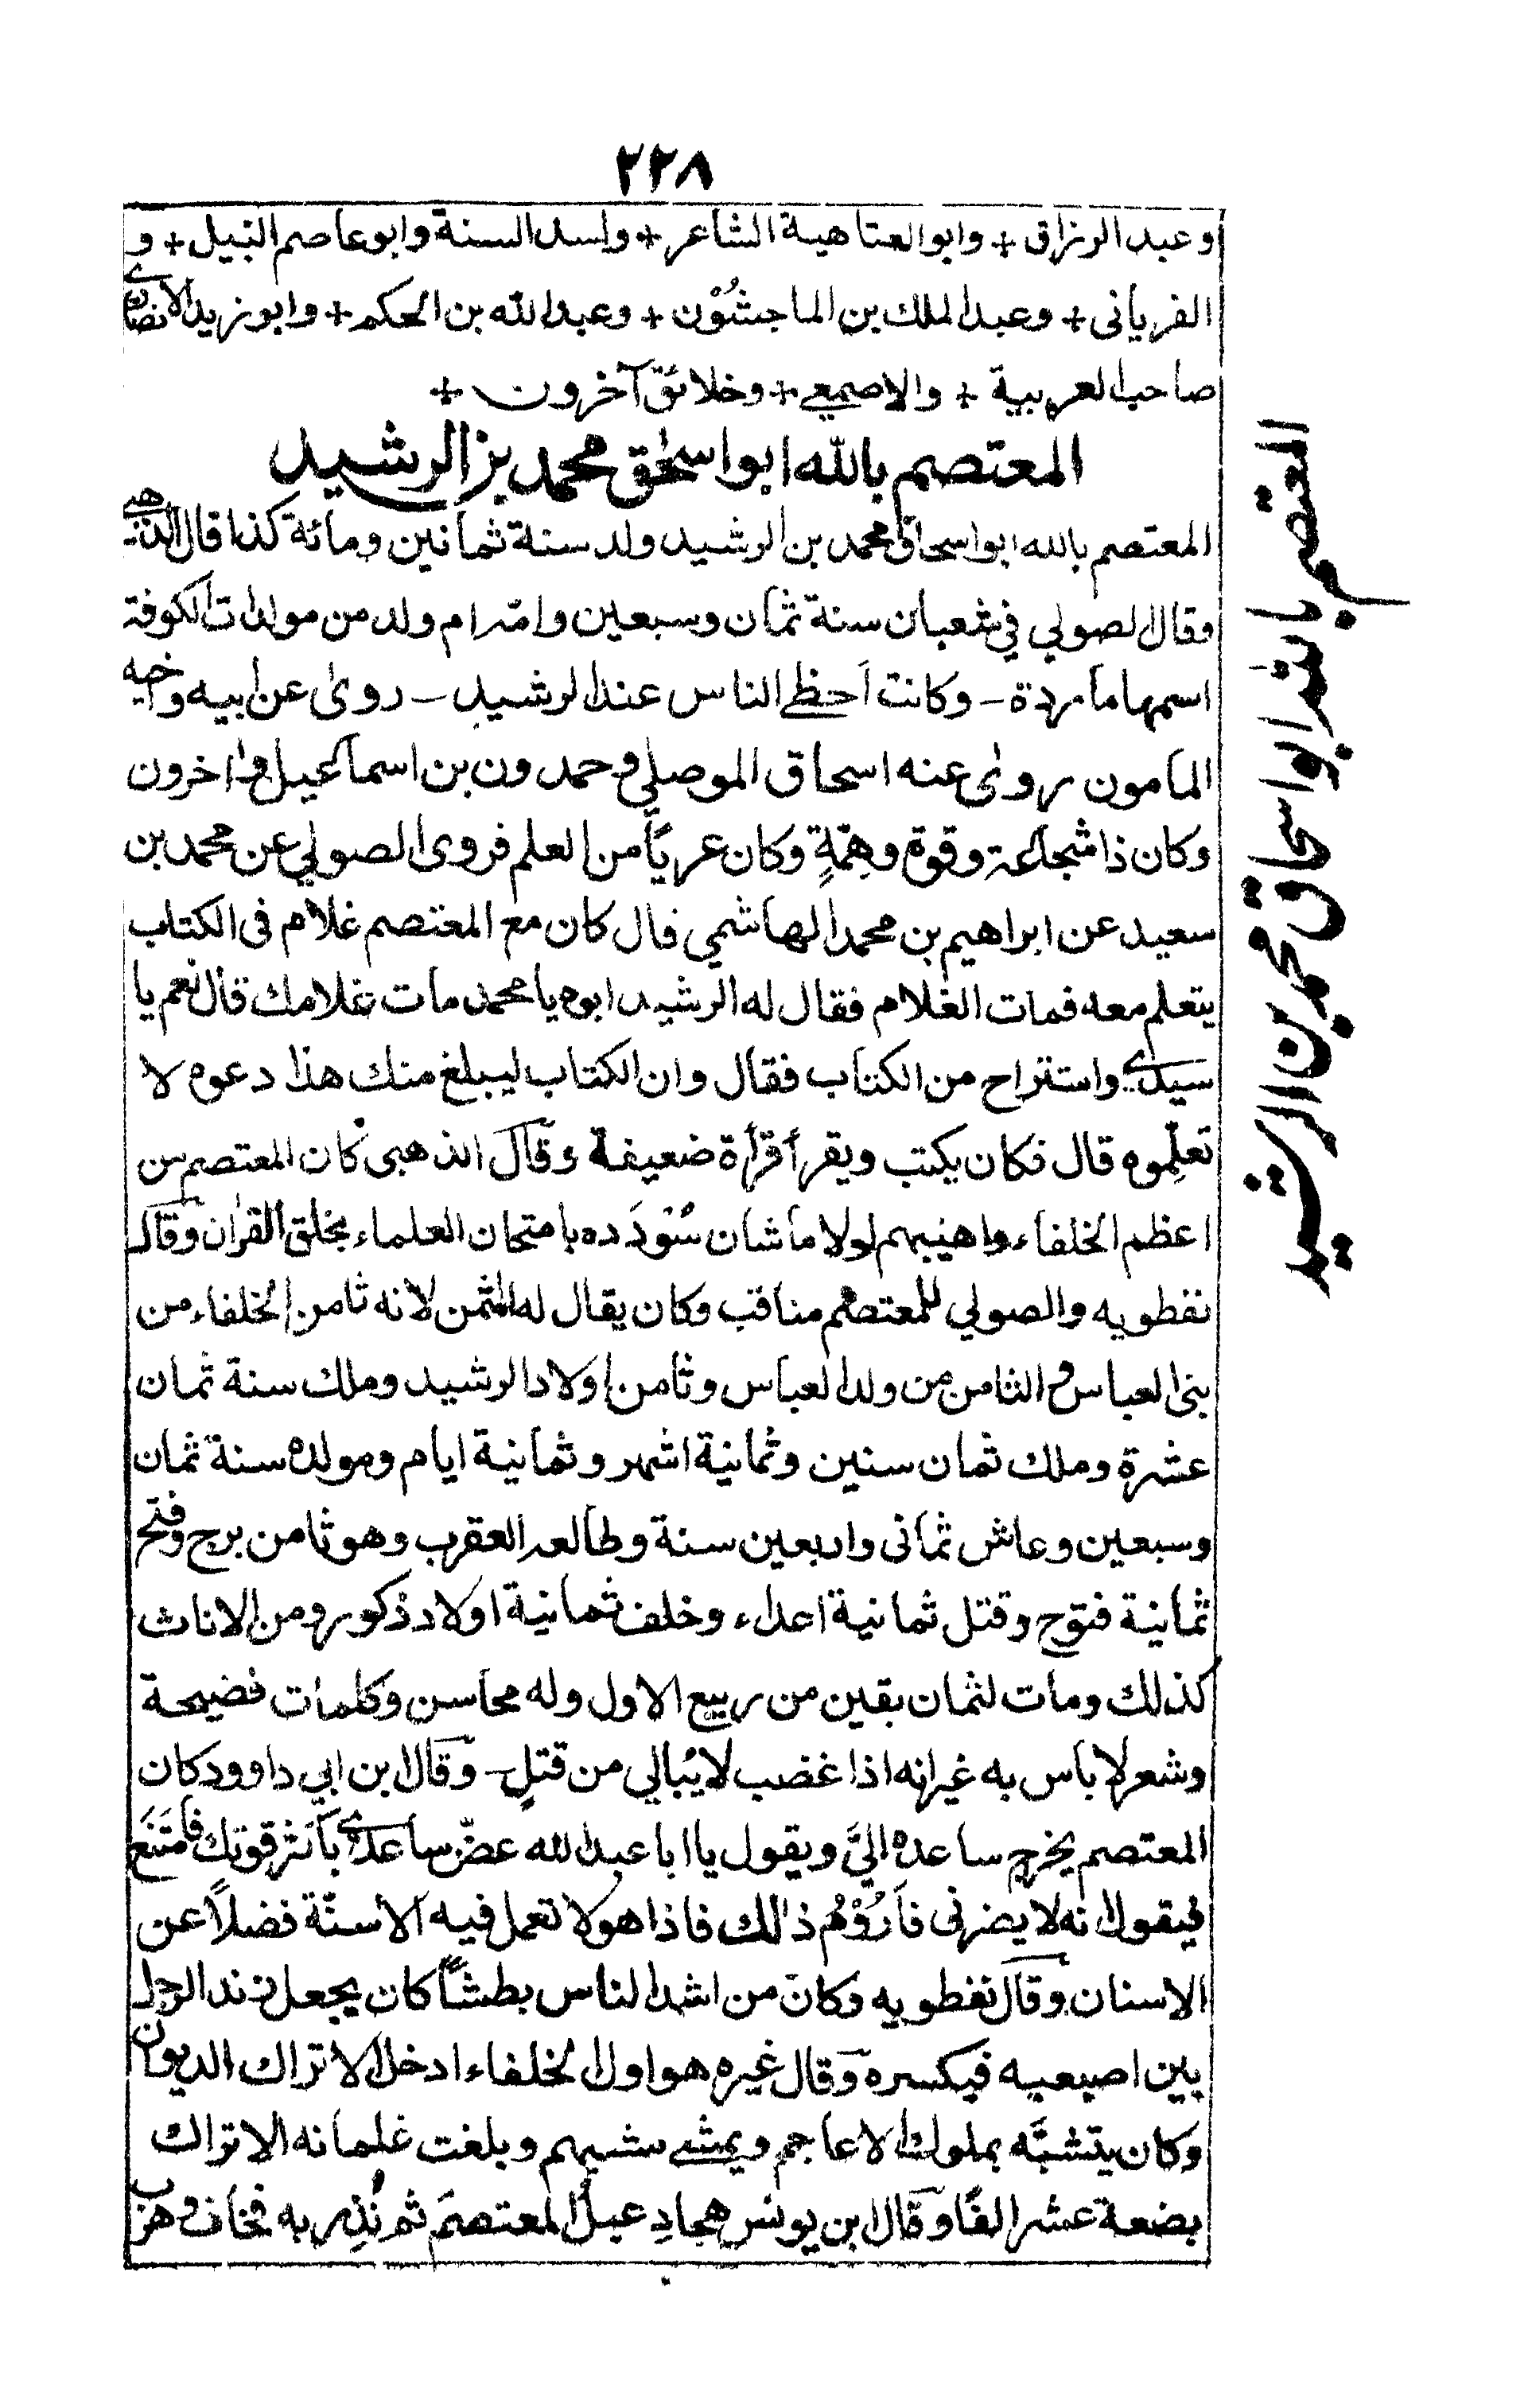 ٢٢٨
وعبد الرزاق + وابو العتاهية الشاعر + واسد السنة وابو عاصم النبيل + و
الفريابى + وعبد الملك بن الماجشُوْن + وعبد الله بن الحكم + وابو زيد الانصارى
صاحب العربية + والاصمعي + وخلائق آخرون +
المعتصم بالله ابو اسحٰق محمد بن الرشيد
المعتصم بالله ابو اسحاق محمد بن الرشيد ولد سنة ثمانين ومائة كذا قال الذهبي
وقال الصولي في شعبان سنة ثمان وسبعين وامّه ام ولد من مولدات الكوفة
اسمها ماردة - وكانت أحظي الناس عند الرشيد - روىٰ عن ابيه واخيه
المامون روىٰ عنه اسحاق الموصلي وحمدون بن اسماعيل واٰخرون
وكان ذا شجاعة وقوة وهمّةٍ وكان عريًّا من العلم فروى الصولي عن محمد بن
سعيد عن ابراهيم بن محمد الهاشمي قال كان مع المعتصم غلام فى الكتاب
يتعلم معه فمات الغلام فقال له الرشيد ابوه يا محمد مات غلامك قال نعم يا
سيدي واستراح من الكتاب فقال وان الكتاب ليبلغ منك هذا دعوه لا
تعلِّموه قال فكان يكتب ويقرأ قرأة ضعيفة وقال الذهبى كان المعتصم من
اعظم الخلفاء واهيبهم لولا ما شان سُوْدَده بامتحان العلماء بخلق القراٰن وقال
نفطويه والصولي للمعتصم مناقب وكان يقال له المثمن لانه ثامن الخلفاء من
بنى العباس والثامن من ولد العباس وثامن اولاد الرشيد وملك سنة ثمان
عشرة وملك ثمان سنين وثمانية اشهر وثمانية ايام ومولده سنة ثمان
وسبعين وعاش ثمانى واربعين سنة وطالعه العقرب وهو ثامن برج وفتح
ثمانية فتوح وقتل ثمانية اعداء وخلف ثمانية اولاد ذكور ومن الاناث
كذلك ومات لثمان بقين من ربيع الاول وله محاسن وكلمات فصيحة
وشعر لا باس به غير انه اذا غضب لا يُبالي من قتل - وقال ابن ابي داوود كان
المعتصم يخرج ساعده اليَّ ويقول يا ابا عبد الله عضّ ساعدى باكثر قوتك فامتنع
فيقول انه لا يضرنى فاَرُوْمُ ذالك فاذا هو لا تعمل فيه الاسنّة فضلاً عن
الاسنان وقال نفطويه وكان من اشد الناس بطشًا كان يجعل زند الرجل
بين اصبعيه فيكسره وقال غيره هو اول الخلفاء ادخل الاتراك الديوان
وكان يتشبَّه بملوك الاعاجم ويمشي مشيهم وبلغت غلمانه الاتراك
بضعة عشر الفًا وقال ابن يونس هجا دِعبلُ المعتصمَ ثم نُذِر به فخاف وهرب
المعتصم بالله ابو اسحاق محمد بن الرشيد